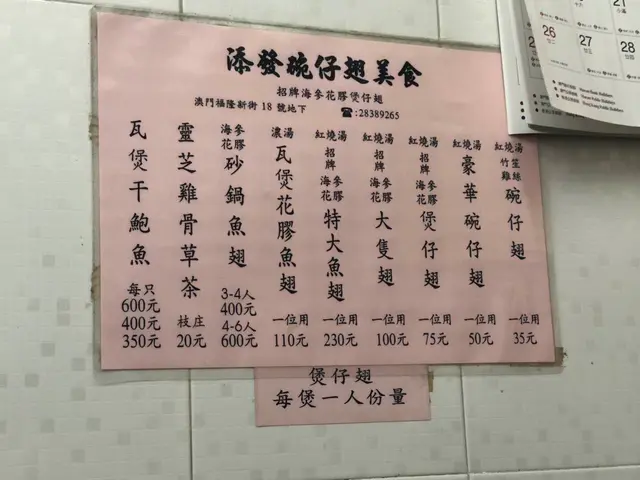 添發碗仔翅美食
招牌海參花膠煲仔翅
澳門福隆新街 18 號地下 ☎:28389265
紅燒湯 竹笙雞絲 碗仔翅 一位用 35元
紅燒湯 豪華碗仔翅 一位用 50元
紅燒湯 招牌 海參花膠 煲仔翅 一位用 75元
紅燒湯 招牌 海參花膠 大隻翅 一位用 100元
紅燒湯 招牌 海參花膠 特大魚翅 一位用 230元
濃湯 瓦煲花膠魚翅 一位用 110元
海參花膠 砂鍋魚翅 3-4人 400元 4-6人 600元
靈芝雞骨草茶 枝庄 20元
瓦煲干鮑魚 每只 600元 400元 350元
煲仔翅
每煲一人份量
21
26
27
28